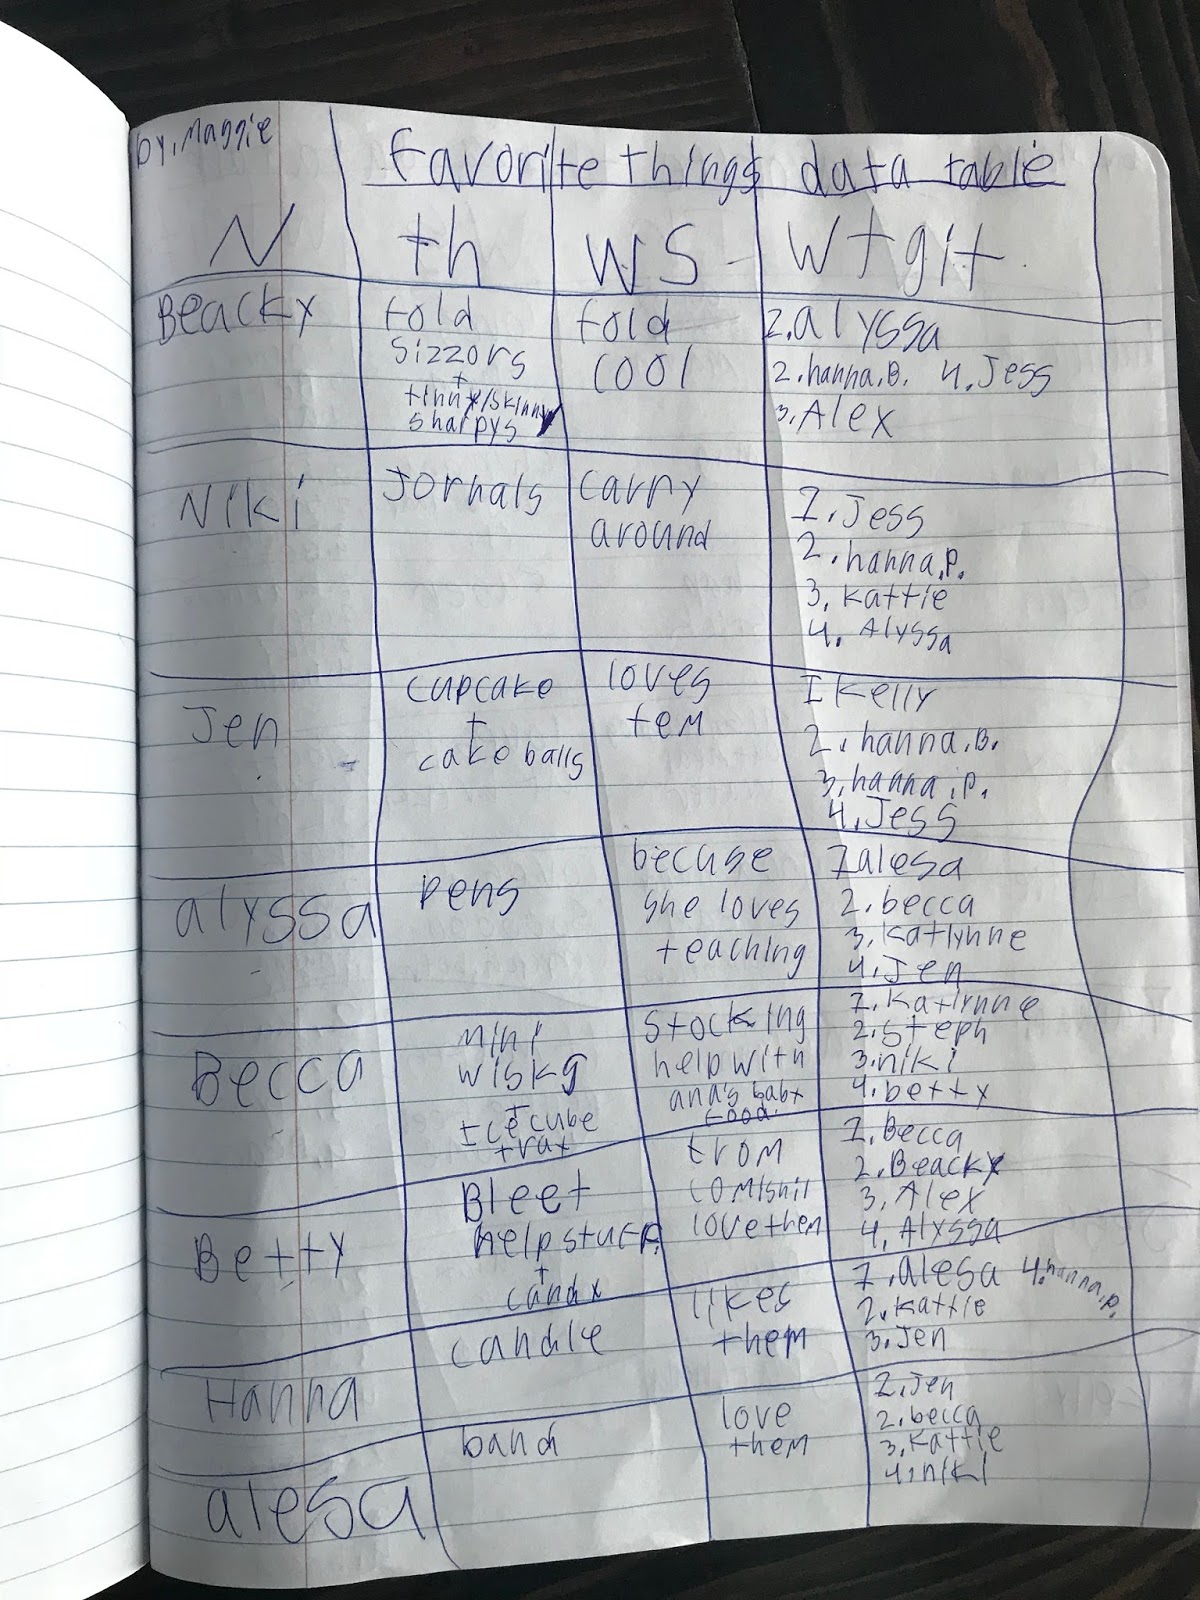 by. Maggie
favorite things data table
N th WS wtgit
Beacky
fold
sizzors
+
tinny/skinny
sharpys
fold
cool
1. alyssa
2. hanna.B. 4. Jess
3. Alex
Niki
Jornals
carry
around
1. Jess
2. hanna.p.
3. kattie
4. Alyssa
Jen
cupcake
+
cake balls
loves
tem
1 kelly
2. hanna.B.
3. hanna.p.
4. Jess
alyssa
pens
becuse
she loves
teaching
1 alesa
2. becca
3. katlynne
4. Jen
Becca
mini
wiskg
+
Ice cube
trax
stocking
help with
ana's baby
food.
1. katlynne
2. steph
3. niki
4. betty
Betty
Bleet
help stuff
+
candy
from
love them
1. Becca
2. Beacky
3. Alex
4. Alyssa
Hanna
candle
likes
them
1. alesa 4. hanna.p.
2. kattie
3. Jen
alesa
band
love
them
1. Jen
2. becca
3. kattie
4. niki